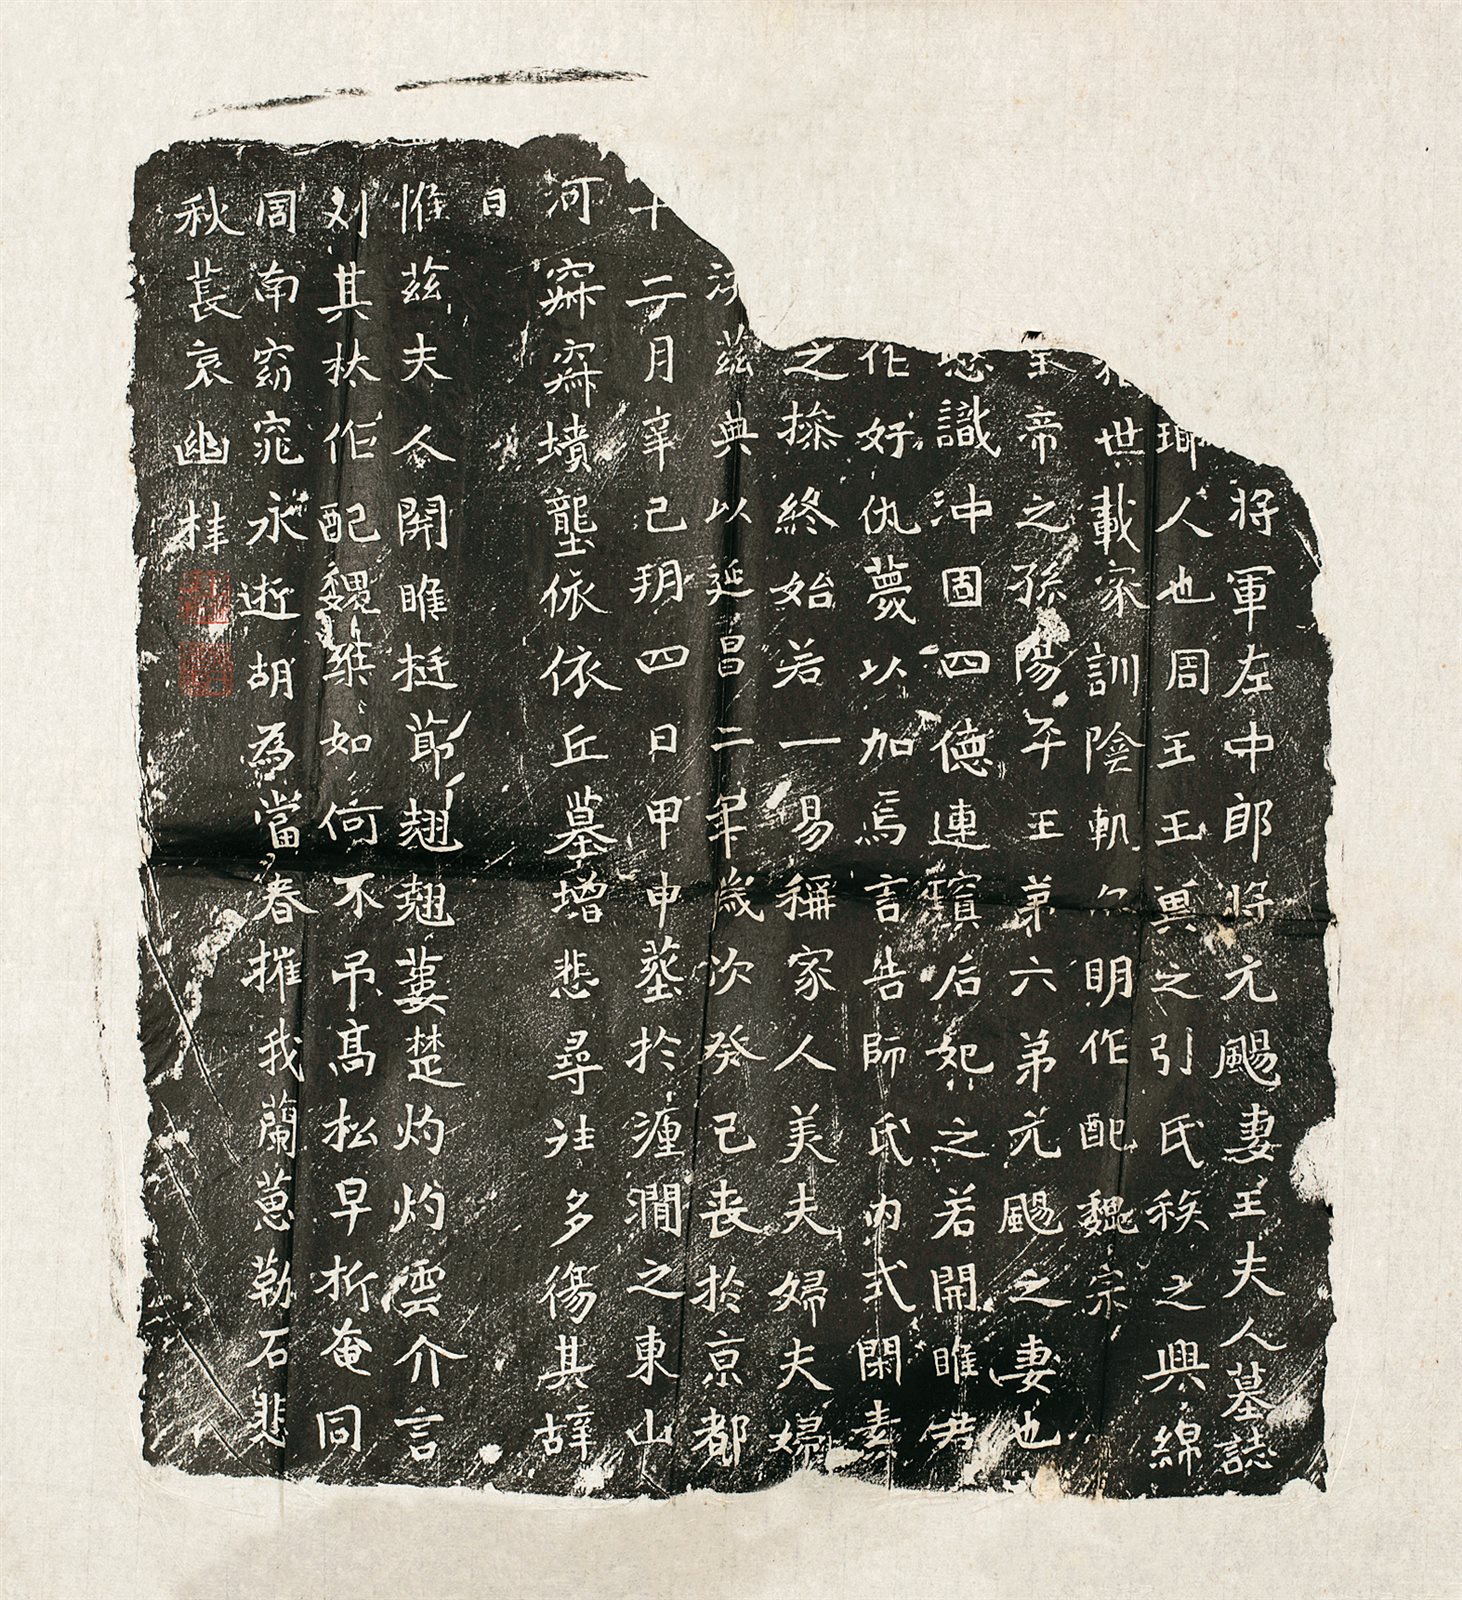 将軍左中郎将元颺妻王夫人墓誌
瑘人也周王王兾之引氏族之興綿
世載家訓陰軌尒明作配魏宗
皇帝之孫陽平王第六弟元颺之妻也
識沖固四德連璸后妃之若開睢尹
作好仇蘡以加焉言告師氏內式閑素
之操終始若一易稱家人美夫婦夫婦
兹典以延昌二年歲次癸巳丧於京都
十二月辛巳玥四日甲申塟於瀍澗之東山
河寂寂墳壟依依丘墓增悲尋往多傷其辞
曰
惟兹夫人開睢挺茆翅翅蔞楚灼灼雲介言
刈其扶作配魏維如何不弔高松早折奄同
周南窈窕永逝胡為當春摧我蘭蔥勒石悲
秋萇哀幽挂